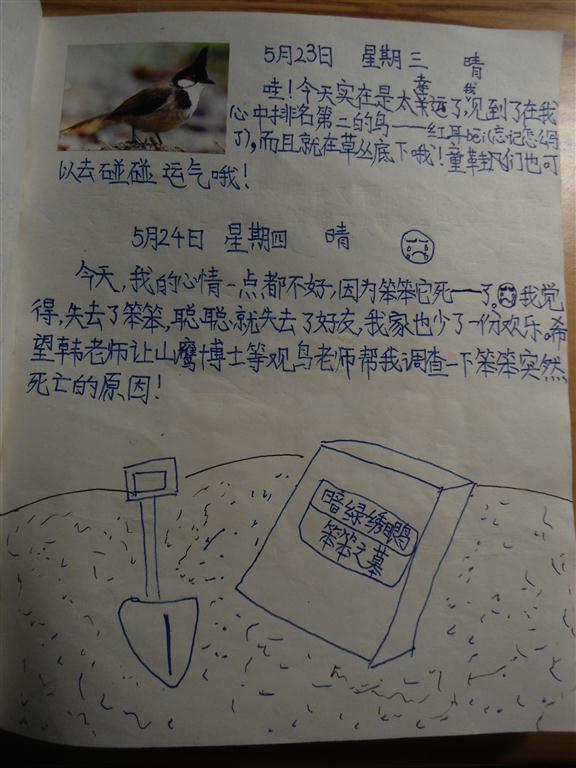 5月23日 星期三 晴
哇!今天实在是太幸运了,我见到了在我
心中排名第二的鸟——红耳鹎(忘记怎么写
了),而且就在草丛底下哦!童鞋们也可
以去碰碰运气哦!
5月24日 星期四 晴
今天,我的心情一点都不好,因为笨笨它死——了,我觉
得,失去了笨笨,聪聪就失去了好友,我家也少了一份欢乐。希
望韩老师让山鹰博士等观鸟老师帮我调查一下笨笨突然
死亡的原因!
暗绿绣眼鸟
笨笨之墓